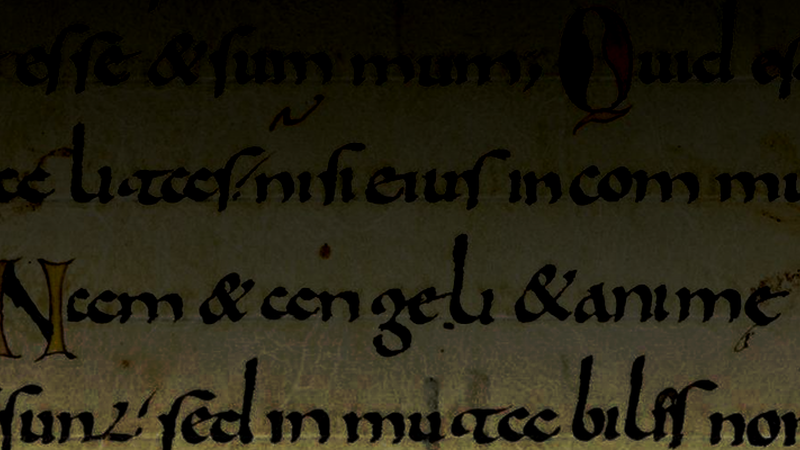 esse & summum; Quid es
alitas; nisi eius incommu
Nam & angeli & anime
sunt; sed in mutabilis non